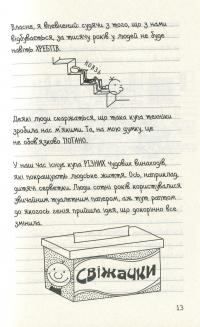 Власне, я впевнений: судячи з того, що з нами
відбувається, за тисячу років у людей не буде
навіть ХРЕБТА.
КОВЗЬ
Деякі люди скаржаться, що така купа техніки
зробила нас м'якими. Та, на мою думку, це
не обов'язково ПОГАНО.
У наш час існує купа РІЗНИХ чудових винаходів,
які покращують людське життя. Ось, наприклад,
дитячі серветки. Люди сотні років користувалися
звичайним туалетним папером, аж тут раптом
до якогось генія прийшла ідея, що докорінно все
змінила.
СВІЖАЧКИ
13